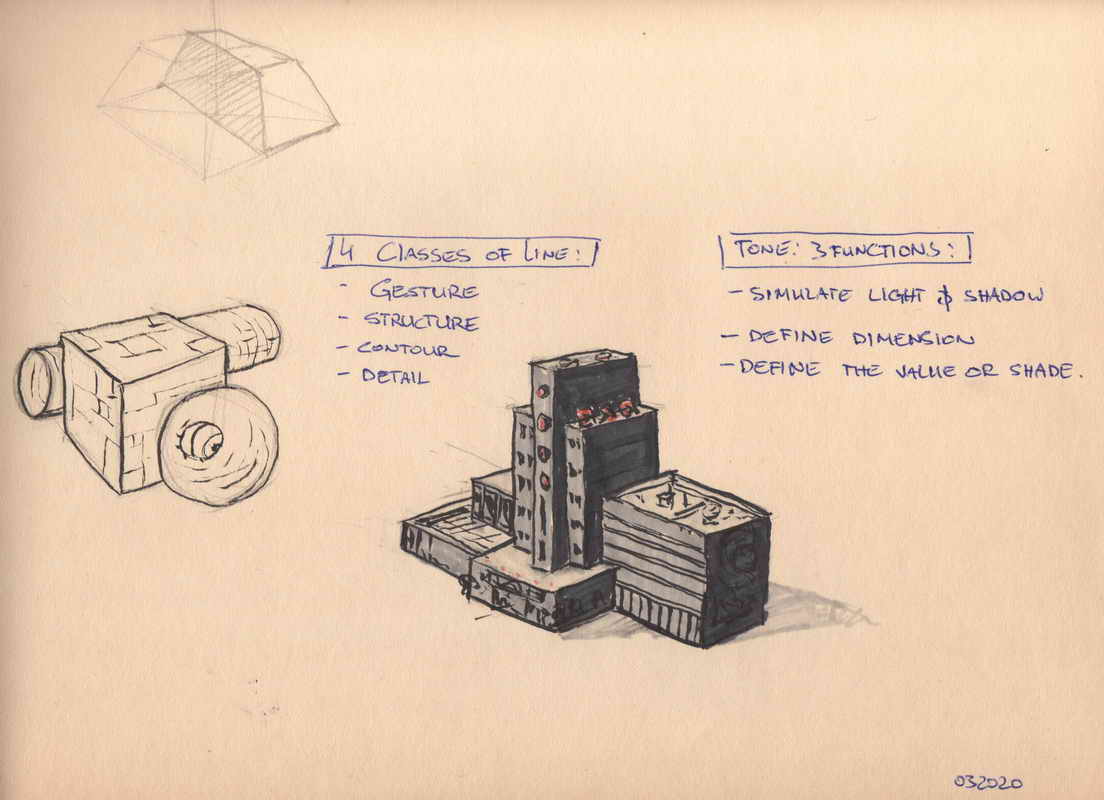 4 CLASSES OF LINE:
- GESTURE
- STRUCTURE
- CONTOUR
- DETAIL
TONE: 3 FUNCTIONS:
- SIMULATE LIGHT & SHADOW
- DEFINE DIMENSION
- DEFINE THE VALUE OR SHADE.
032020